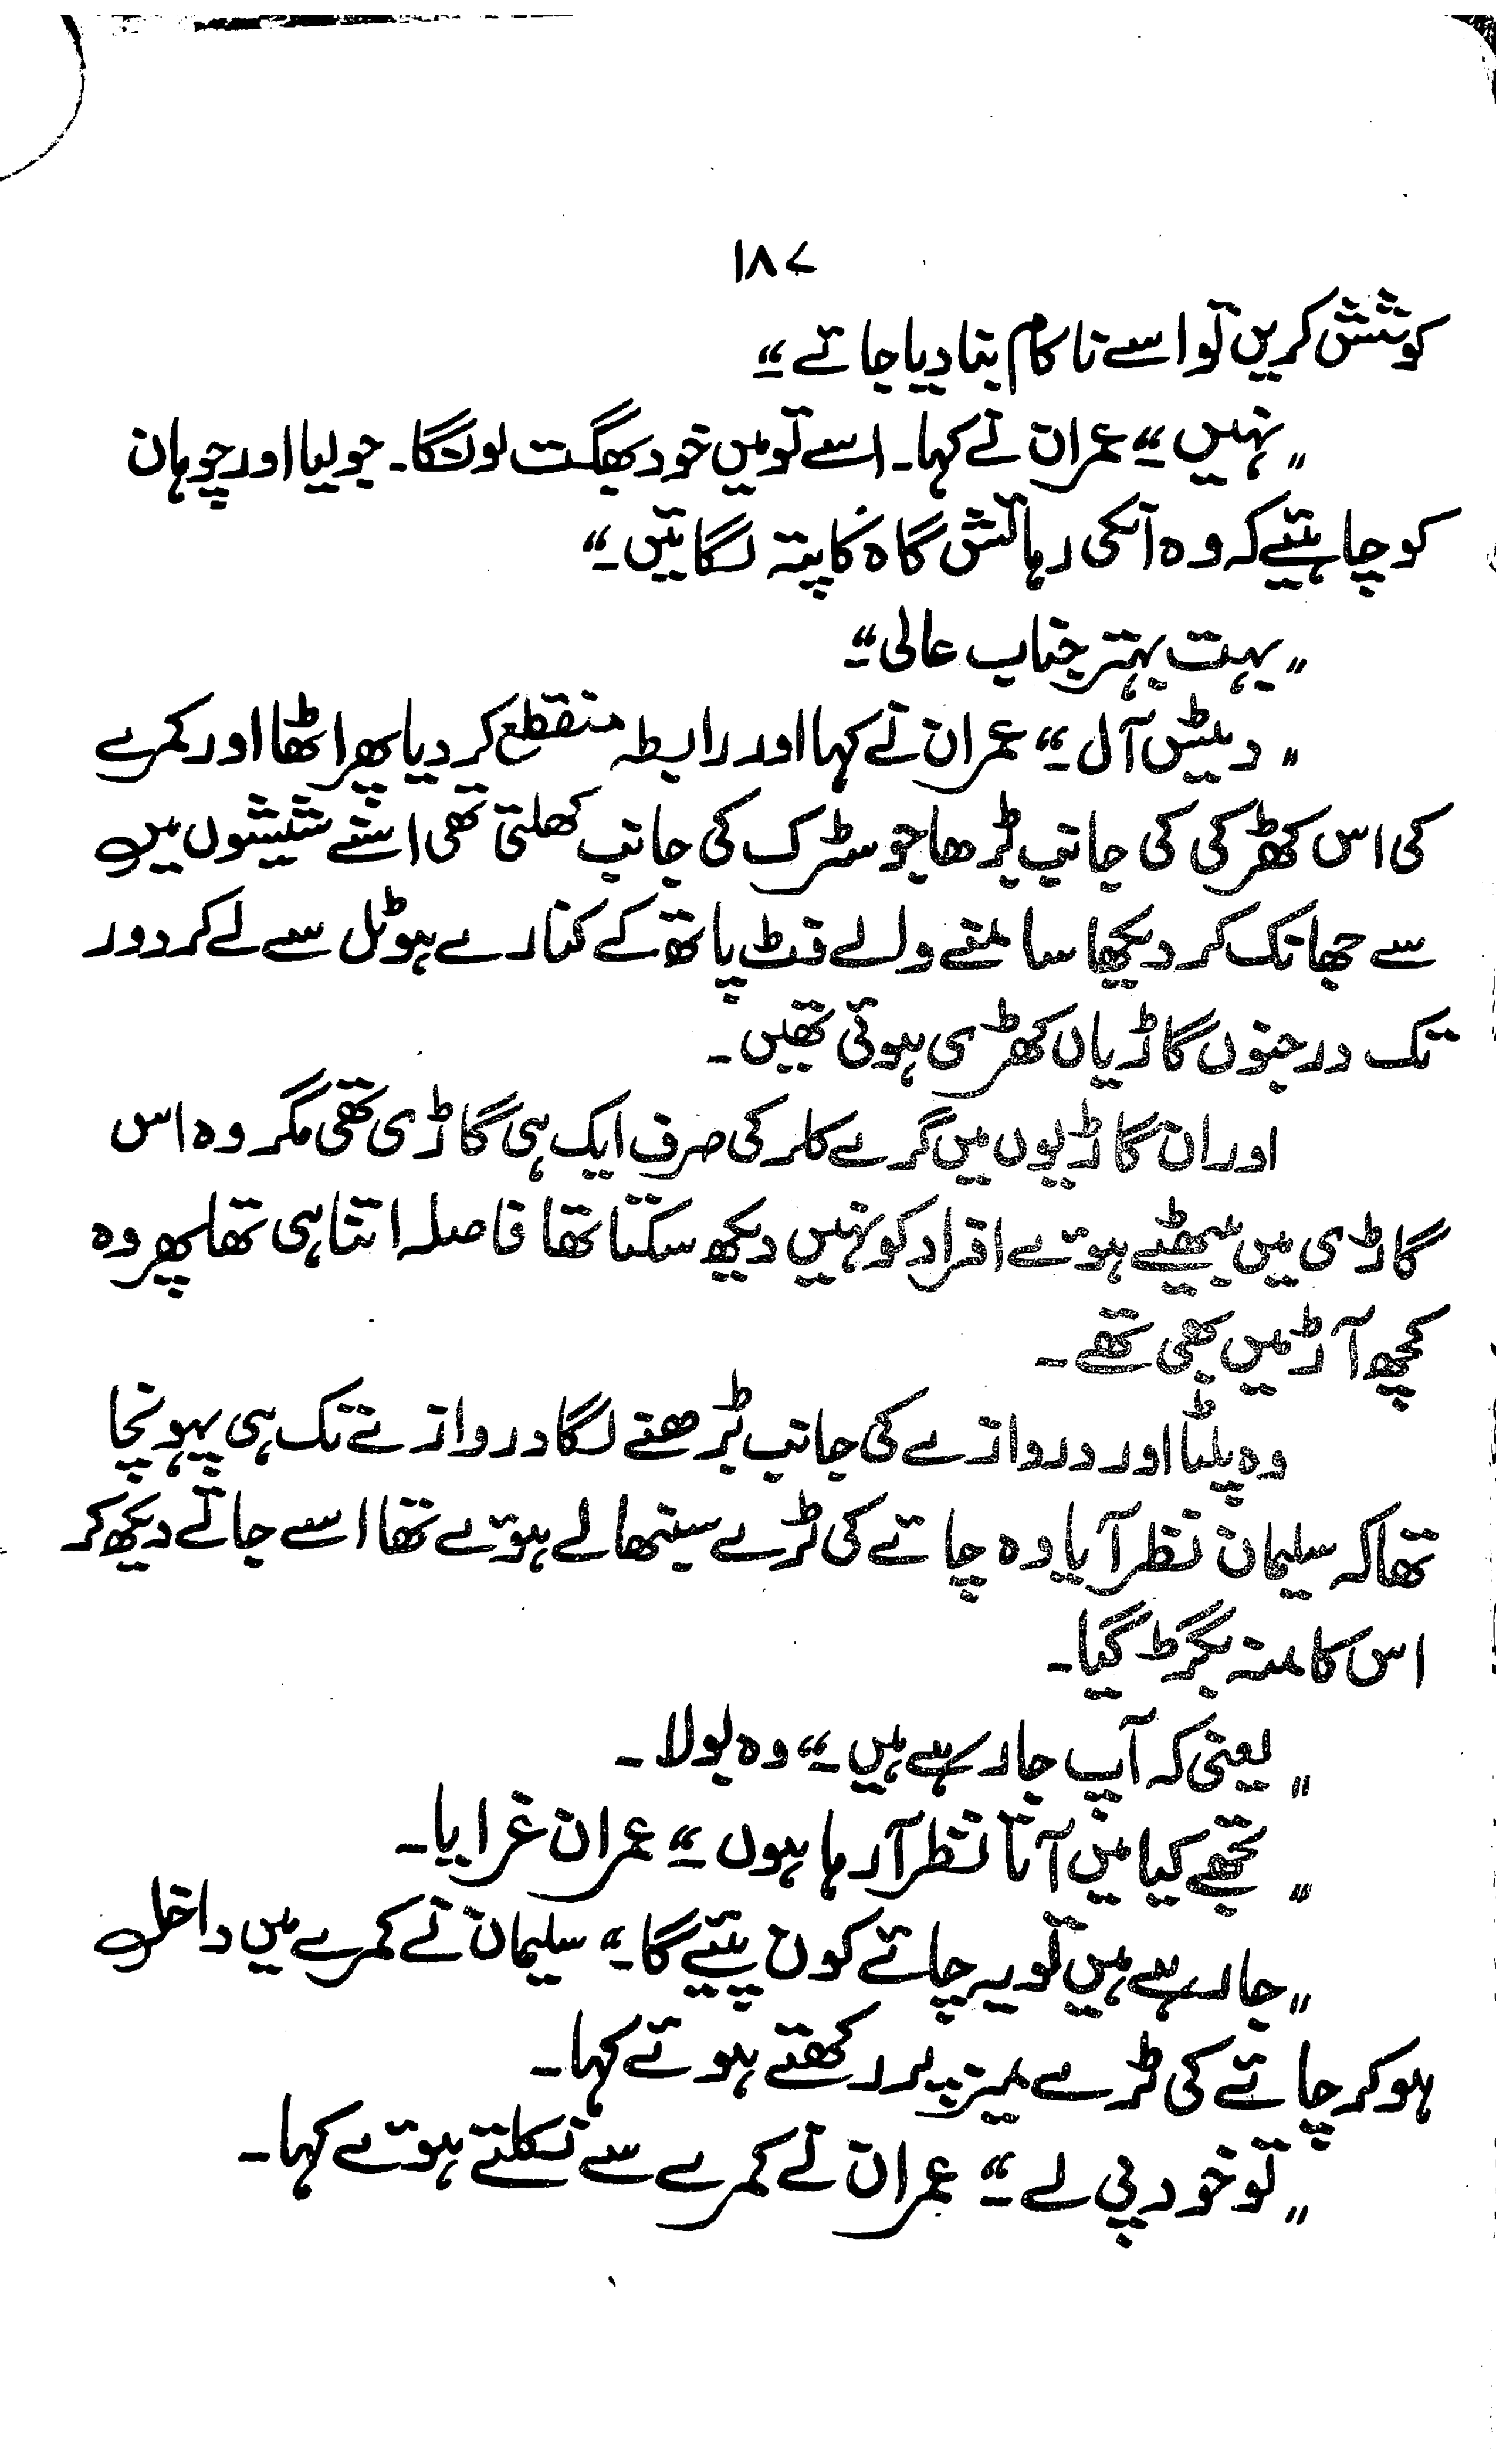 ۱۸۷
کوشش کریں تو اسے ناکام بنا دیا جائے۔“
”نہیں۔“ عمران نے کہا۔ اسے تو میں خود بھگت لونگا۔ جولیا اور چوہان
کو چاہیئے کہ وہ انکی رہائش گاہ کا پتہ لگائیں۔“
”بہت بہتر جناب عالی۔“
”دیٹس آل۔“ عمران نے کہا اور رابطہ منقطع کر دیا پھر اٹھا اور کمرے
کی اس کھڑکی کی جانب بڑھا جو سڑک کی جانب کھلتی تھی اسنے شیشوں میں
سے جھانک کر دیکھا سامنے والے فٹ پاتھ کے کنارے ہوٹل سے لے کر دور
تک درجنوں گاڑیاں کھڑی ہوئی تھیں۔
اور ان گاڑیوں میں گرے کلر کی صرف ایک ہی گاڑی تھی مگر وہ اس
گاڑی میں بیٹھے ہوئے افراد کو نہیں دیکھ سکتا تھا فاصلہ اتنا ہی تھا پھر وہ
کچھ آڑ میں بھی تھے۔
وہ پلٹا اور دروازے کی جانب بڑھنے لگا دروازے تک ہی پہونچا
تھا کہ سلیمان نظر آیا وہ چائے کی ٹرے سینھالے ہوئے تھا اسے جاتے دیکھ کر
اس کا منہ بگڑ گیا۔
”یعنی کہ آپ جا رہے ہیں۔“ وہ بولا۔
”تجھے کیا میں آتا نظر آ رہا ہوں۔“ عمران غرایا۔
”جا رہے ہیں تو یہ چائے کون پیئے گا۔“ سلیمان نے کمرے میں داخل
ہو کر چائے کی ٹرے میز پر رکھتے ہوئے کہا۔
”تو خود پی لے۔“ عمران نے کمرے سے نکلتے ہوئے کہا۔